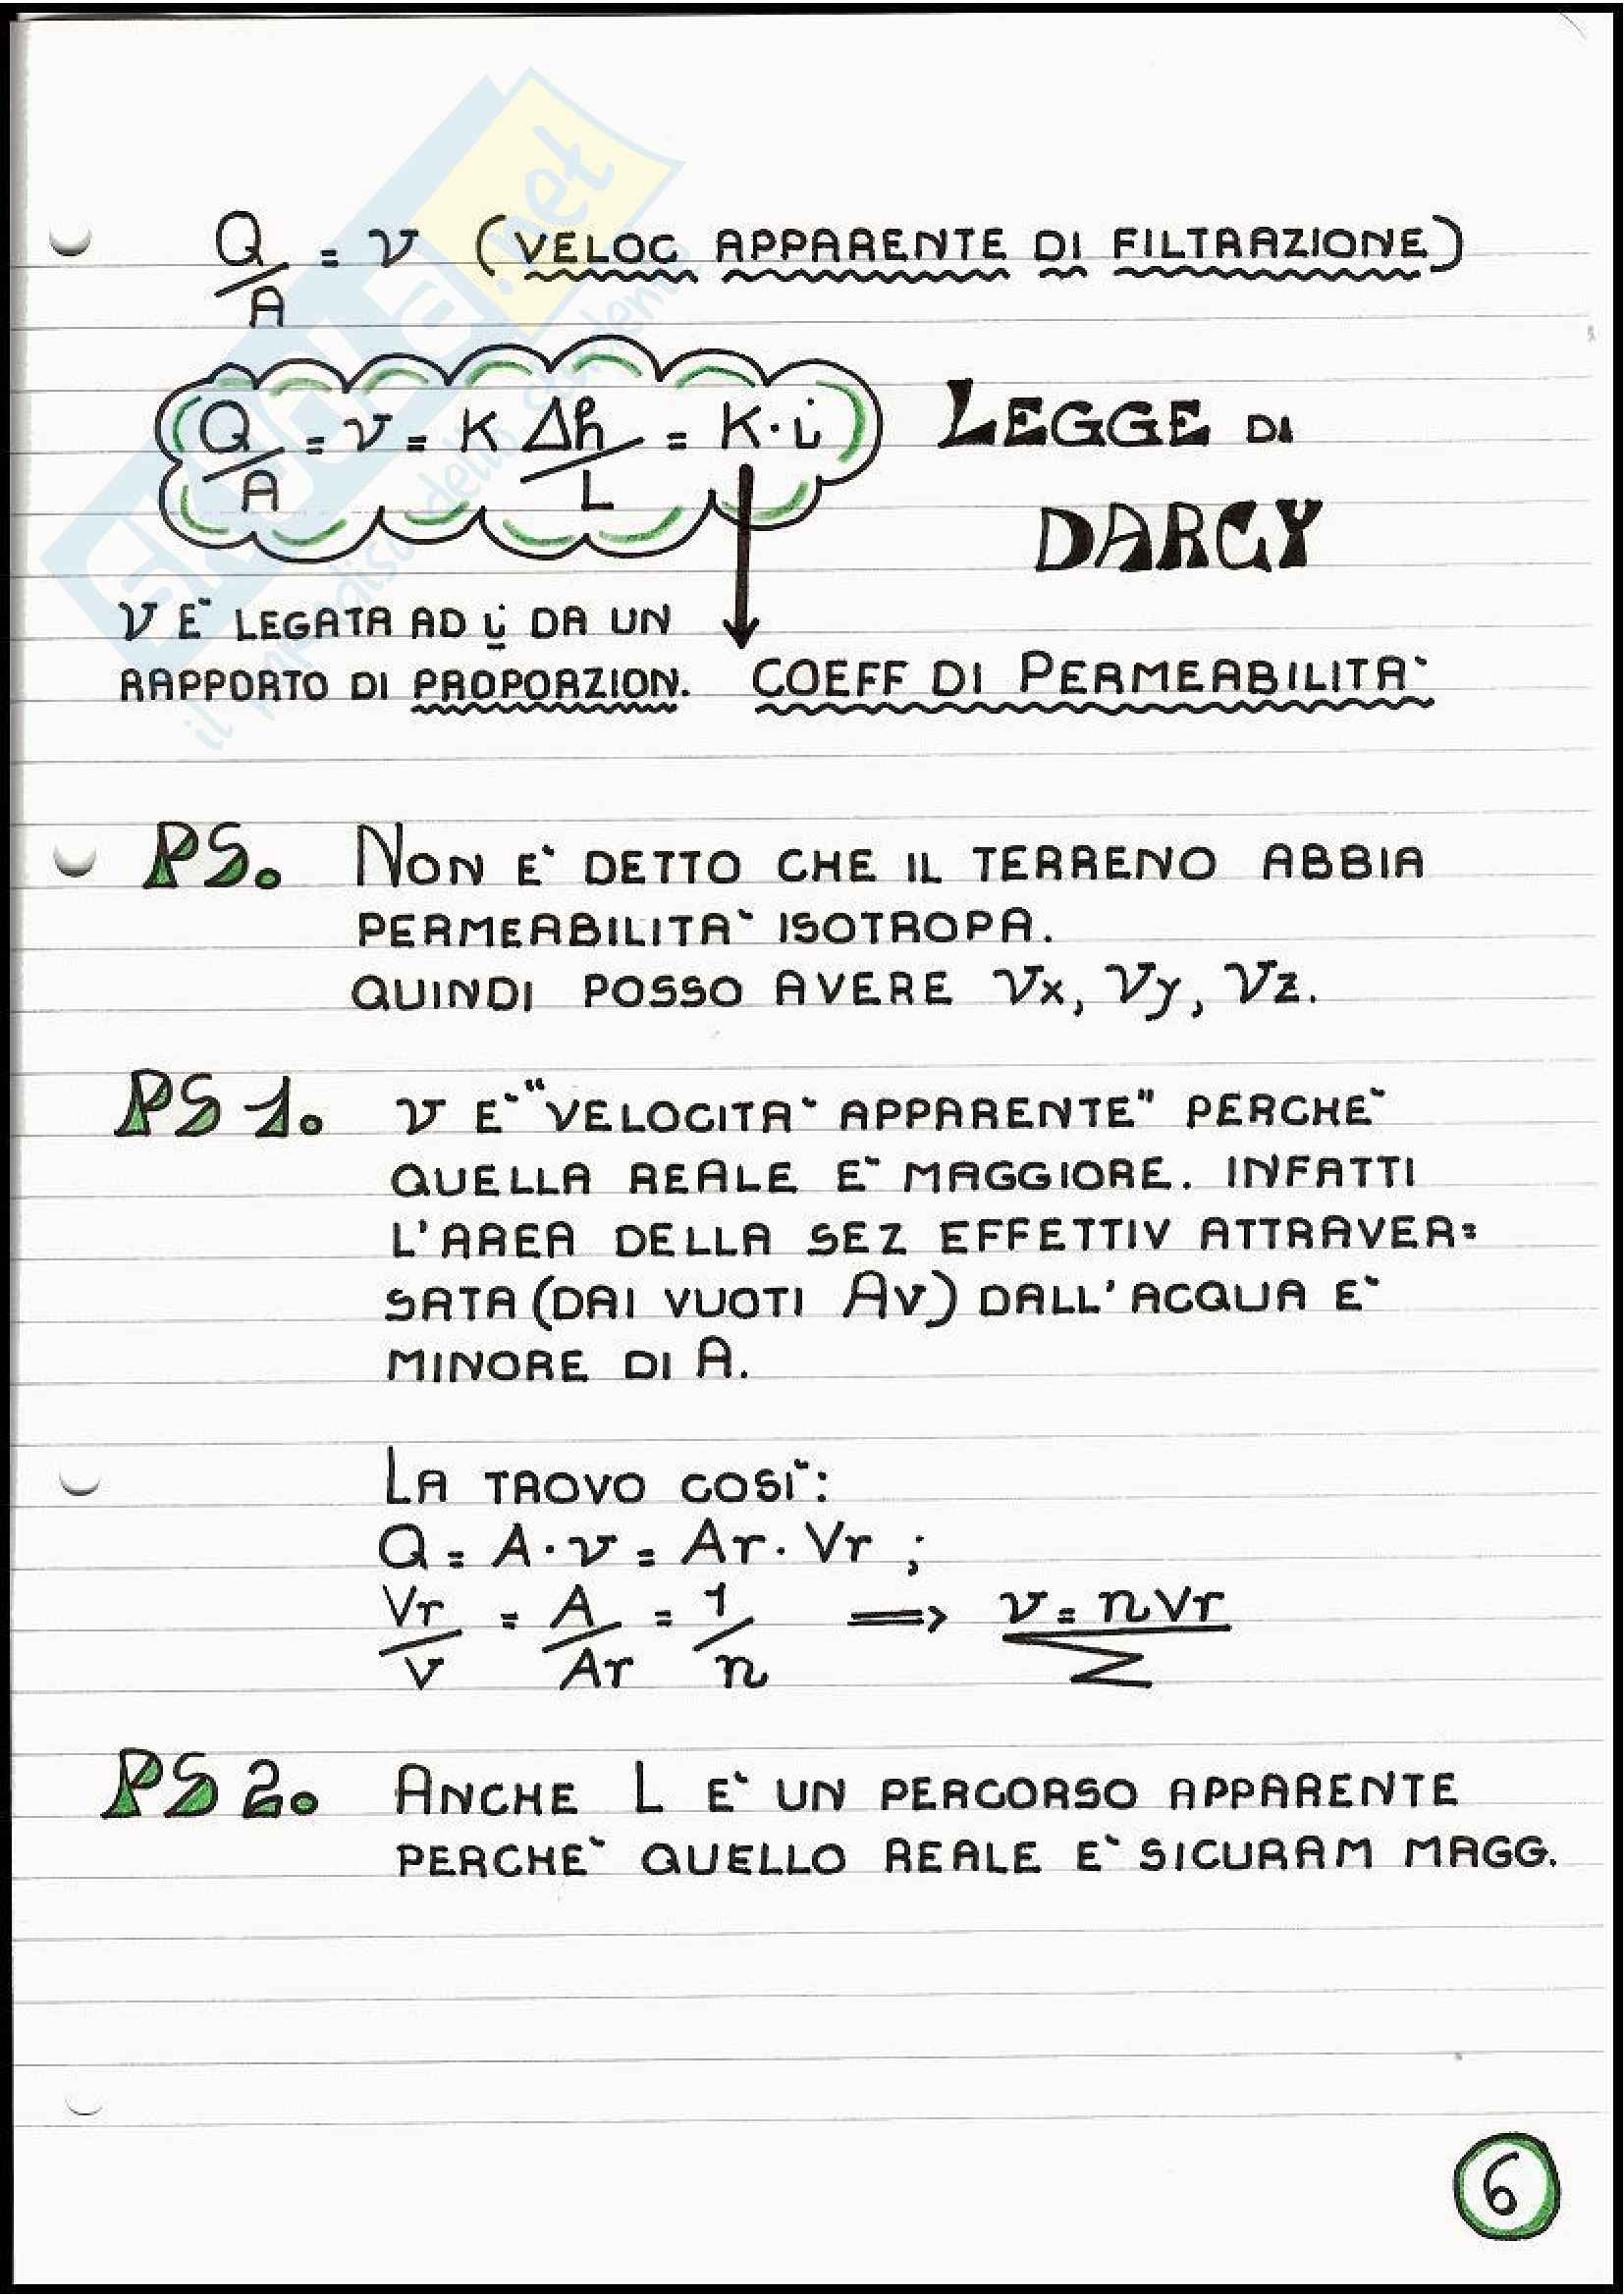 Q/A = v (VELOC APPARENTE DI FILTRAZIONE)
Q/A = v = K Δh/L = K · i LEGGE DI
DARCY
v E` LEGATA AD i DA UN
RAPPORTO DI PROPORZION. COEFF DI PERMEABILITA`
PS. NON E` DETTO CHE IL TERRENO ABBIA
PERMEABILITA` ISOTROPA.
QUINDI POSSO AVERE Vx, Vy, Vz.
PS 1. v E` "VELOCITA` APPARENTE" PERCHE`
QUELLA REALE E` MAGGIORE. INFATTI
L'AREA DELLA SEZ EFFETTIV ATTRAVER=
SATA (DAI VUOTI Av) DALL'ACQUA E`
MINORE DI A.
LA TROVO COSI`:
Q = A · v = Ar · Vr ;
Vr/v = A/Ar = 1/n => v = n Vr
PS 2. ANCHE L E` UN PERCORSO APPARENTE
PERCHE` QUELLO REALE E` SICURAM MAGG.
6